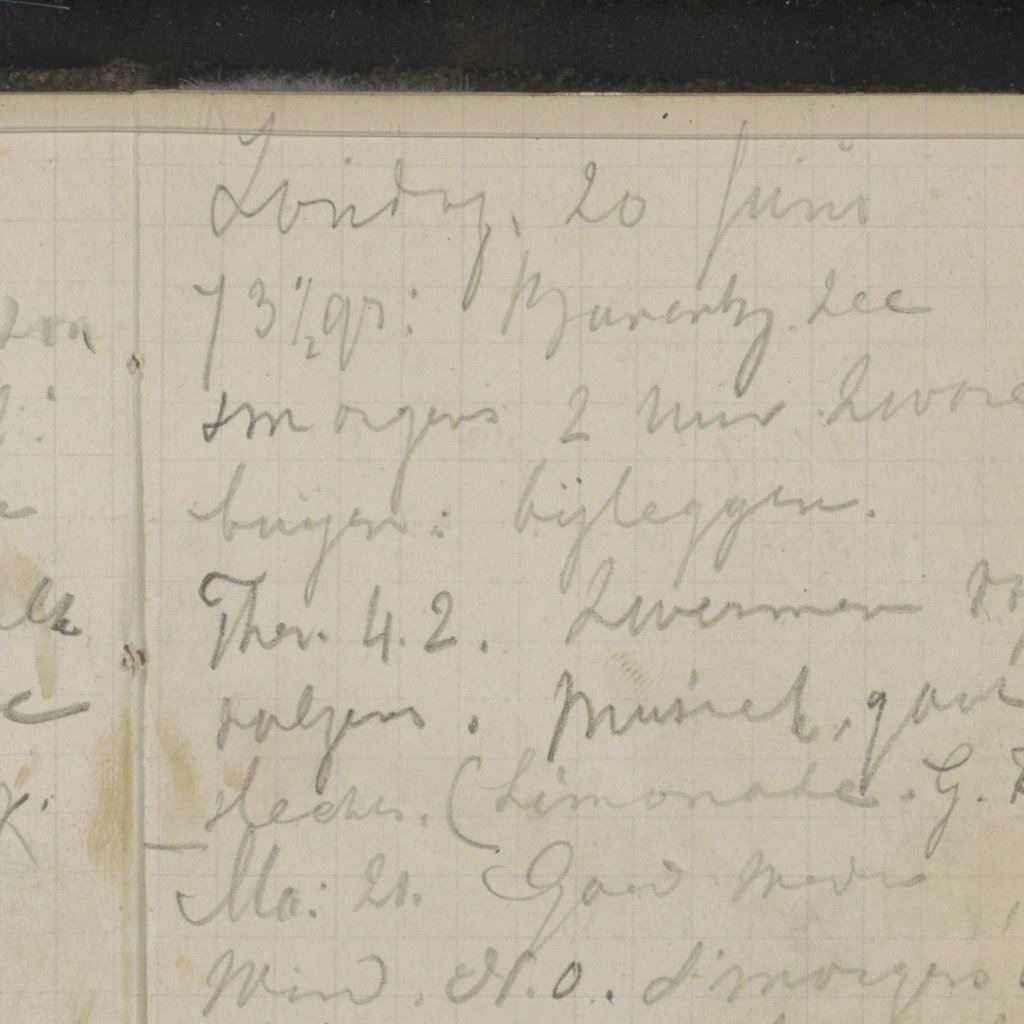 Zondag, 20 Juni
73 1/2 gr: Barentz. Zee
smorgens 2 uur. Zware
buijen: bijleggen.
Ther. 4.2. Zwermen
volgens. Musiek, gaat
slecht. (Limonade. G.
Ma: 21. Goed weder
Wind. N.O. s'morgens